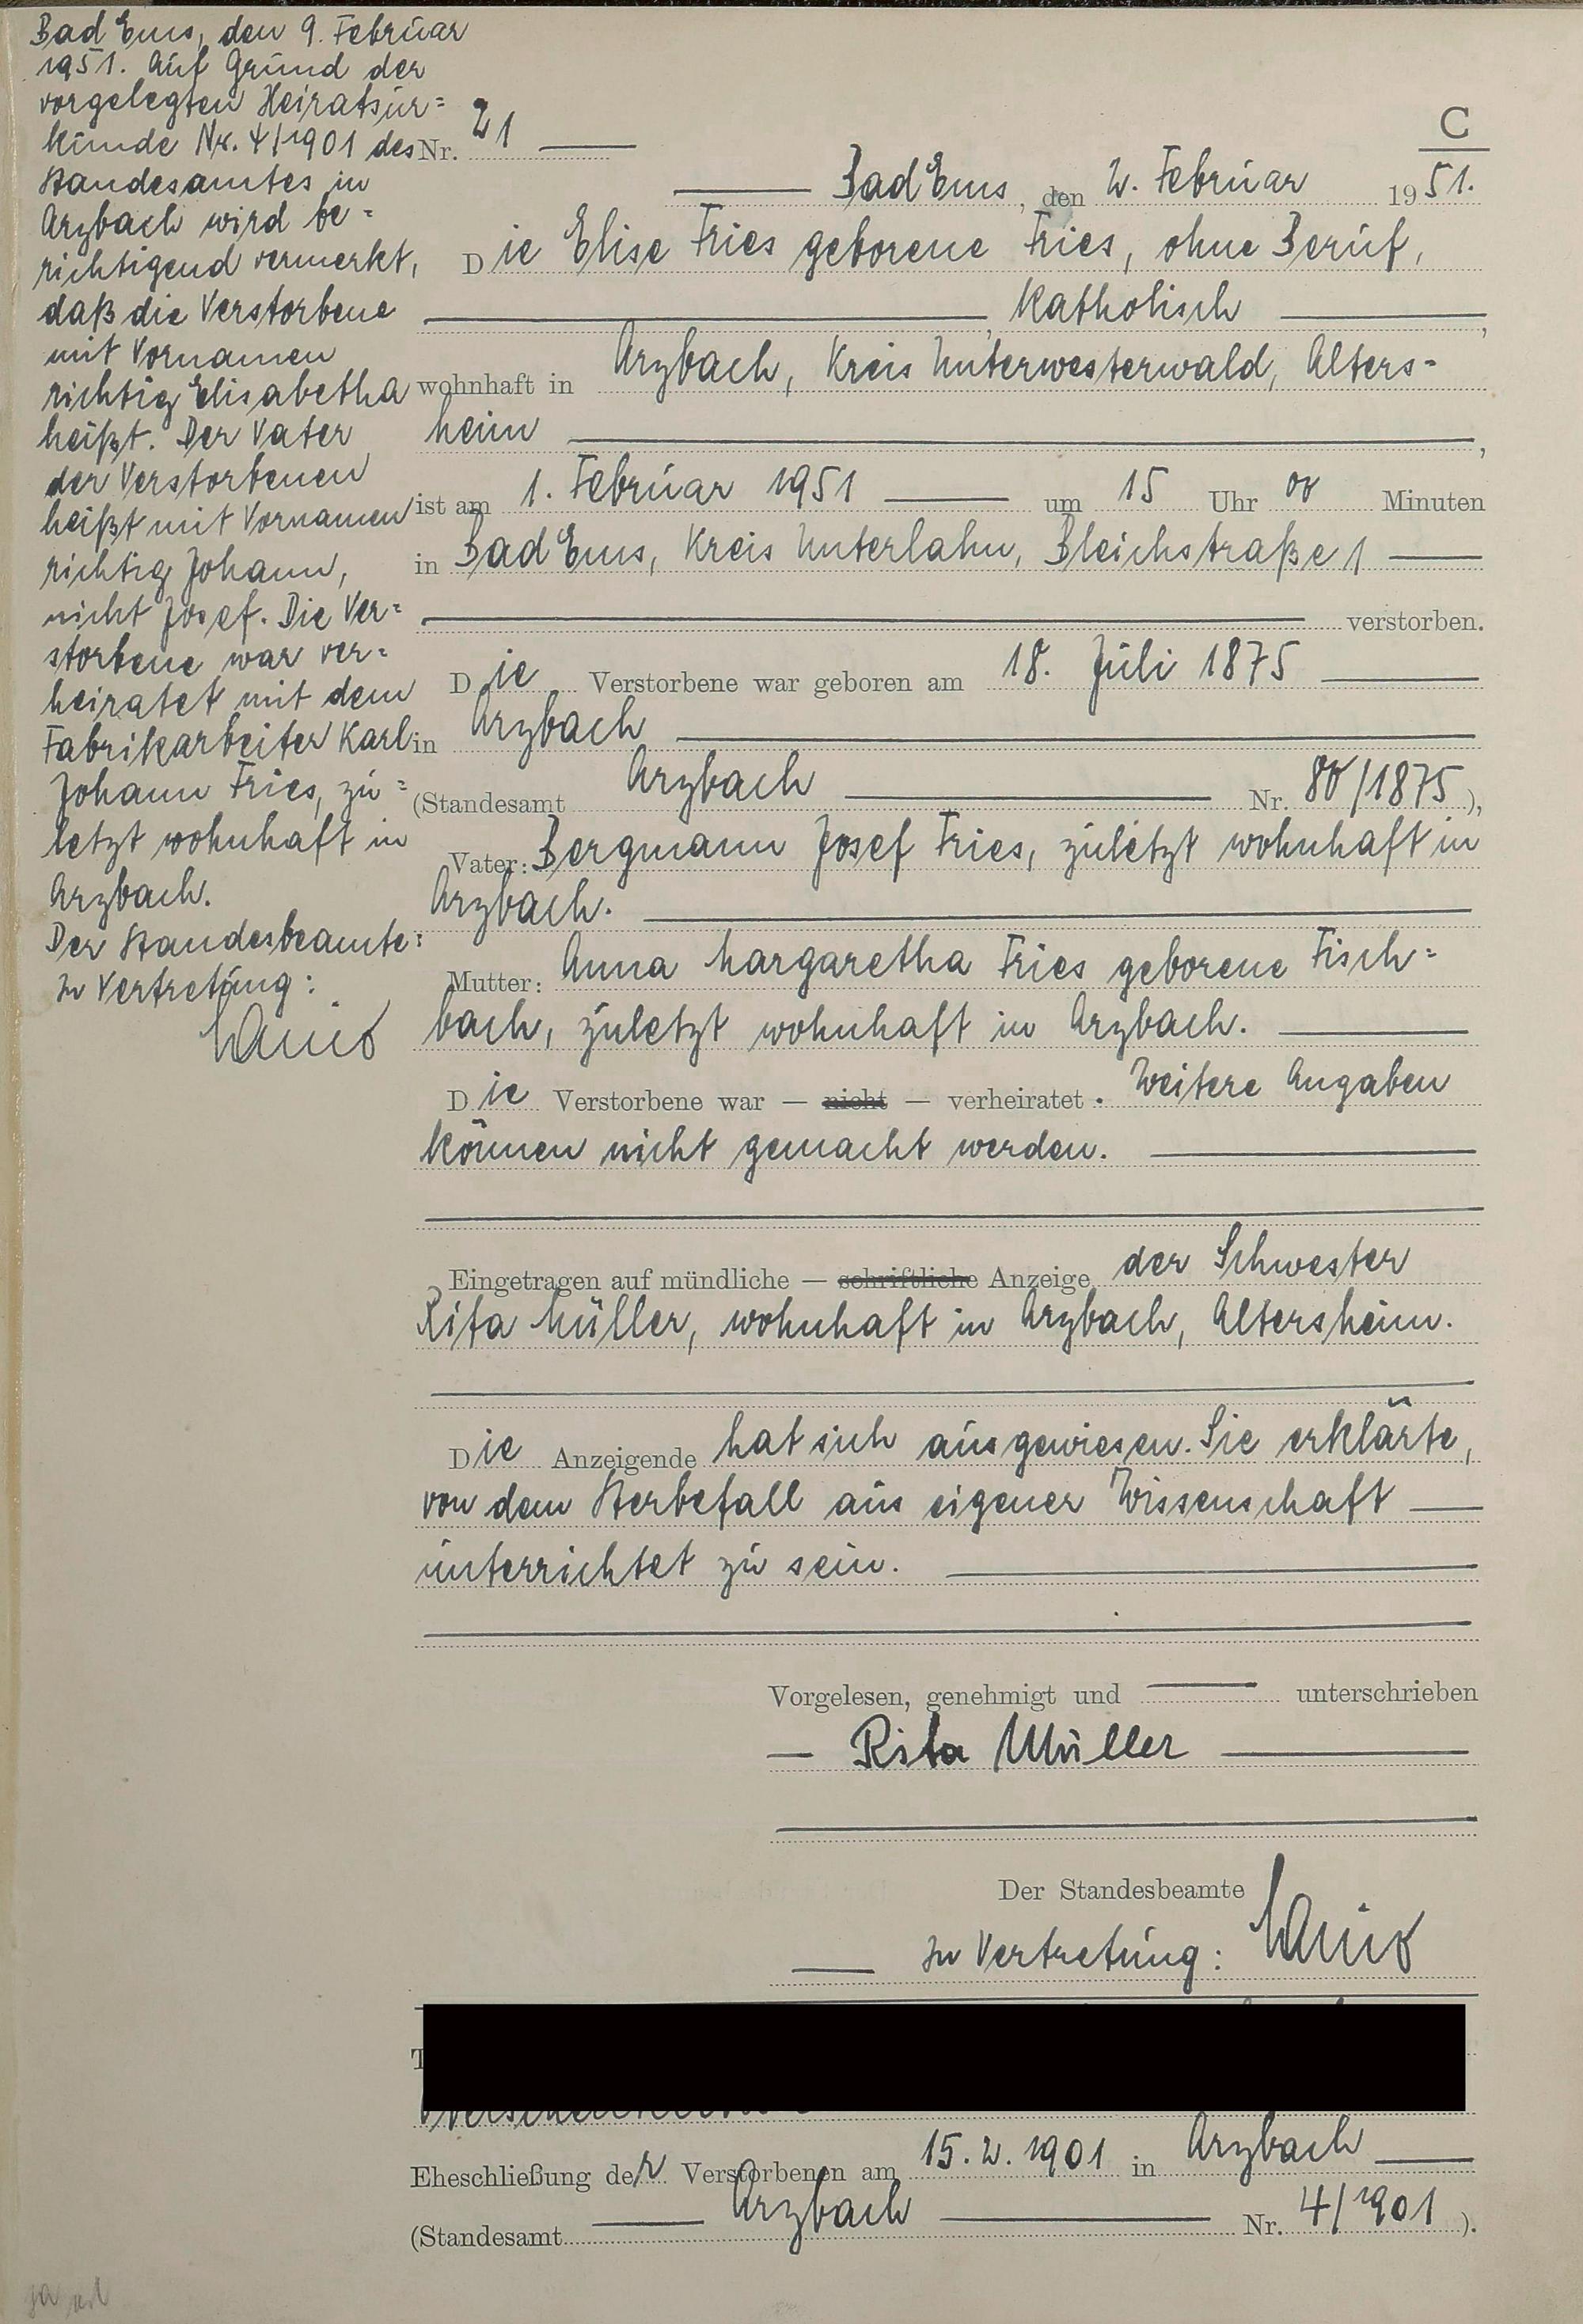 Bad Ems, den 9. Februar
1951. Auf Grund der
vorgelegten Heiratsur=
kunde Nr. 4/1901 des
Standesamtes in
Arzbach wird be=
richtigend vermerkt,
daß die Verstorbene
mit Vornamen
richtig Elisabetha
heißt. Der Vater
der Verstorbenen
heißt mit Vornamen
richtig Johann,
nicht Josef. Die Ver=
storbene war ver=
heiratet mit dem
Fabrikarbeiter Karl
Johann Fries, zu=
letzt wohnhaft in
Arzbach.
Der Standesbeamte:
In Vertretung:
C
Nr. 21
Bad Ems, den 2. Februar 1951.
Die Elise Fries geborene Fries, ohne Beruf,
, katholisch ,
wohnhaft in Arzbach, Kreis Unterwesterwald, Alters-
heim ,
ist am 1. Februar 1951 um 15 Uhr 00 Minuten
in Bad Ems, Kreis Unterlahn, Bleichstraße 1
verstorben.
Die Verstorbene war geboren am 18. Juli 1875
in Arzbach
(Standesamt Arzbach Nr. 80/1875),
Vater: Bergmann Josef Fries, zuletzt wohnhaft in
Arzbach.
Mutter: Anna Margaretha Fries geborene Fisch=
bach, zuletzt wohnhaft in Arzbach.
Die Verstorbene war — nicht — verheiratet. Weitere Angaben
können nicht gemacht werden.
Eingetragen auf mündliche — schriftliche Anzeige der Schwester
Rita Müller, wohnhaft in Arzbach, Altersheim.
Die Anzeigende hat sich ausgewiesen. Sie erklärte,
von dem Sterbefall aus eigener Wissenschaft
unterrichtet zu sein.
Vorgelesen, genehmigt und unterschrieben
Rita Müller
Der Standesbeamte
In Vertretung:
Eheschließung der Verstorbenen am 15.2.1901 in Arzbach
(Standesamt Arzbach Nr. 4/1901).